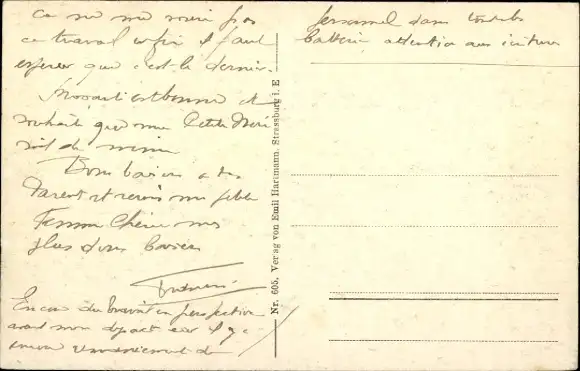 ca ne me
ce travail enfin il faut
esperer que c'est le dernier
santé est bonne et
souhaite que ma Petite
soit de meme
Bons baisers a tes
Parents et recois ma petite
Femme Cherie mes
plus doux baisers
Encore du travail en perspective
avant mon depart car il y a
encore remaniement de
personnel dans toutes les
batteries attention aux
Nr. 605. Verlag von Emil Hartmann. Strassburg i. E